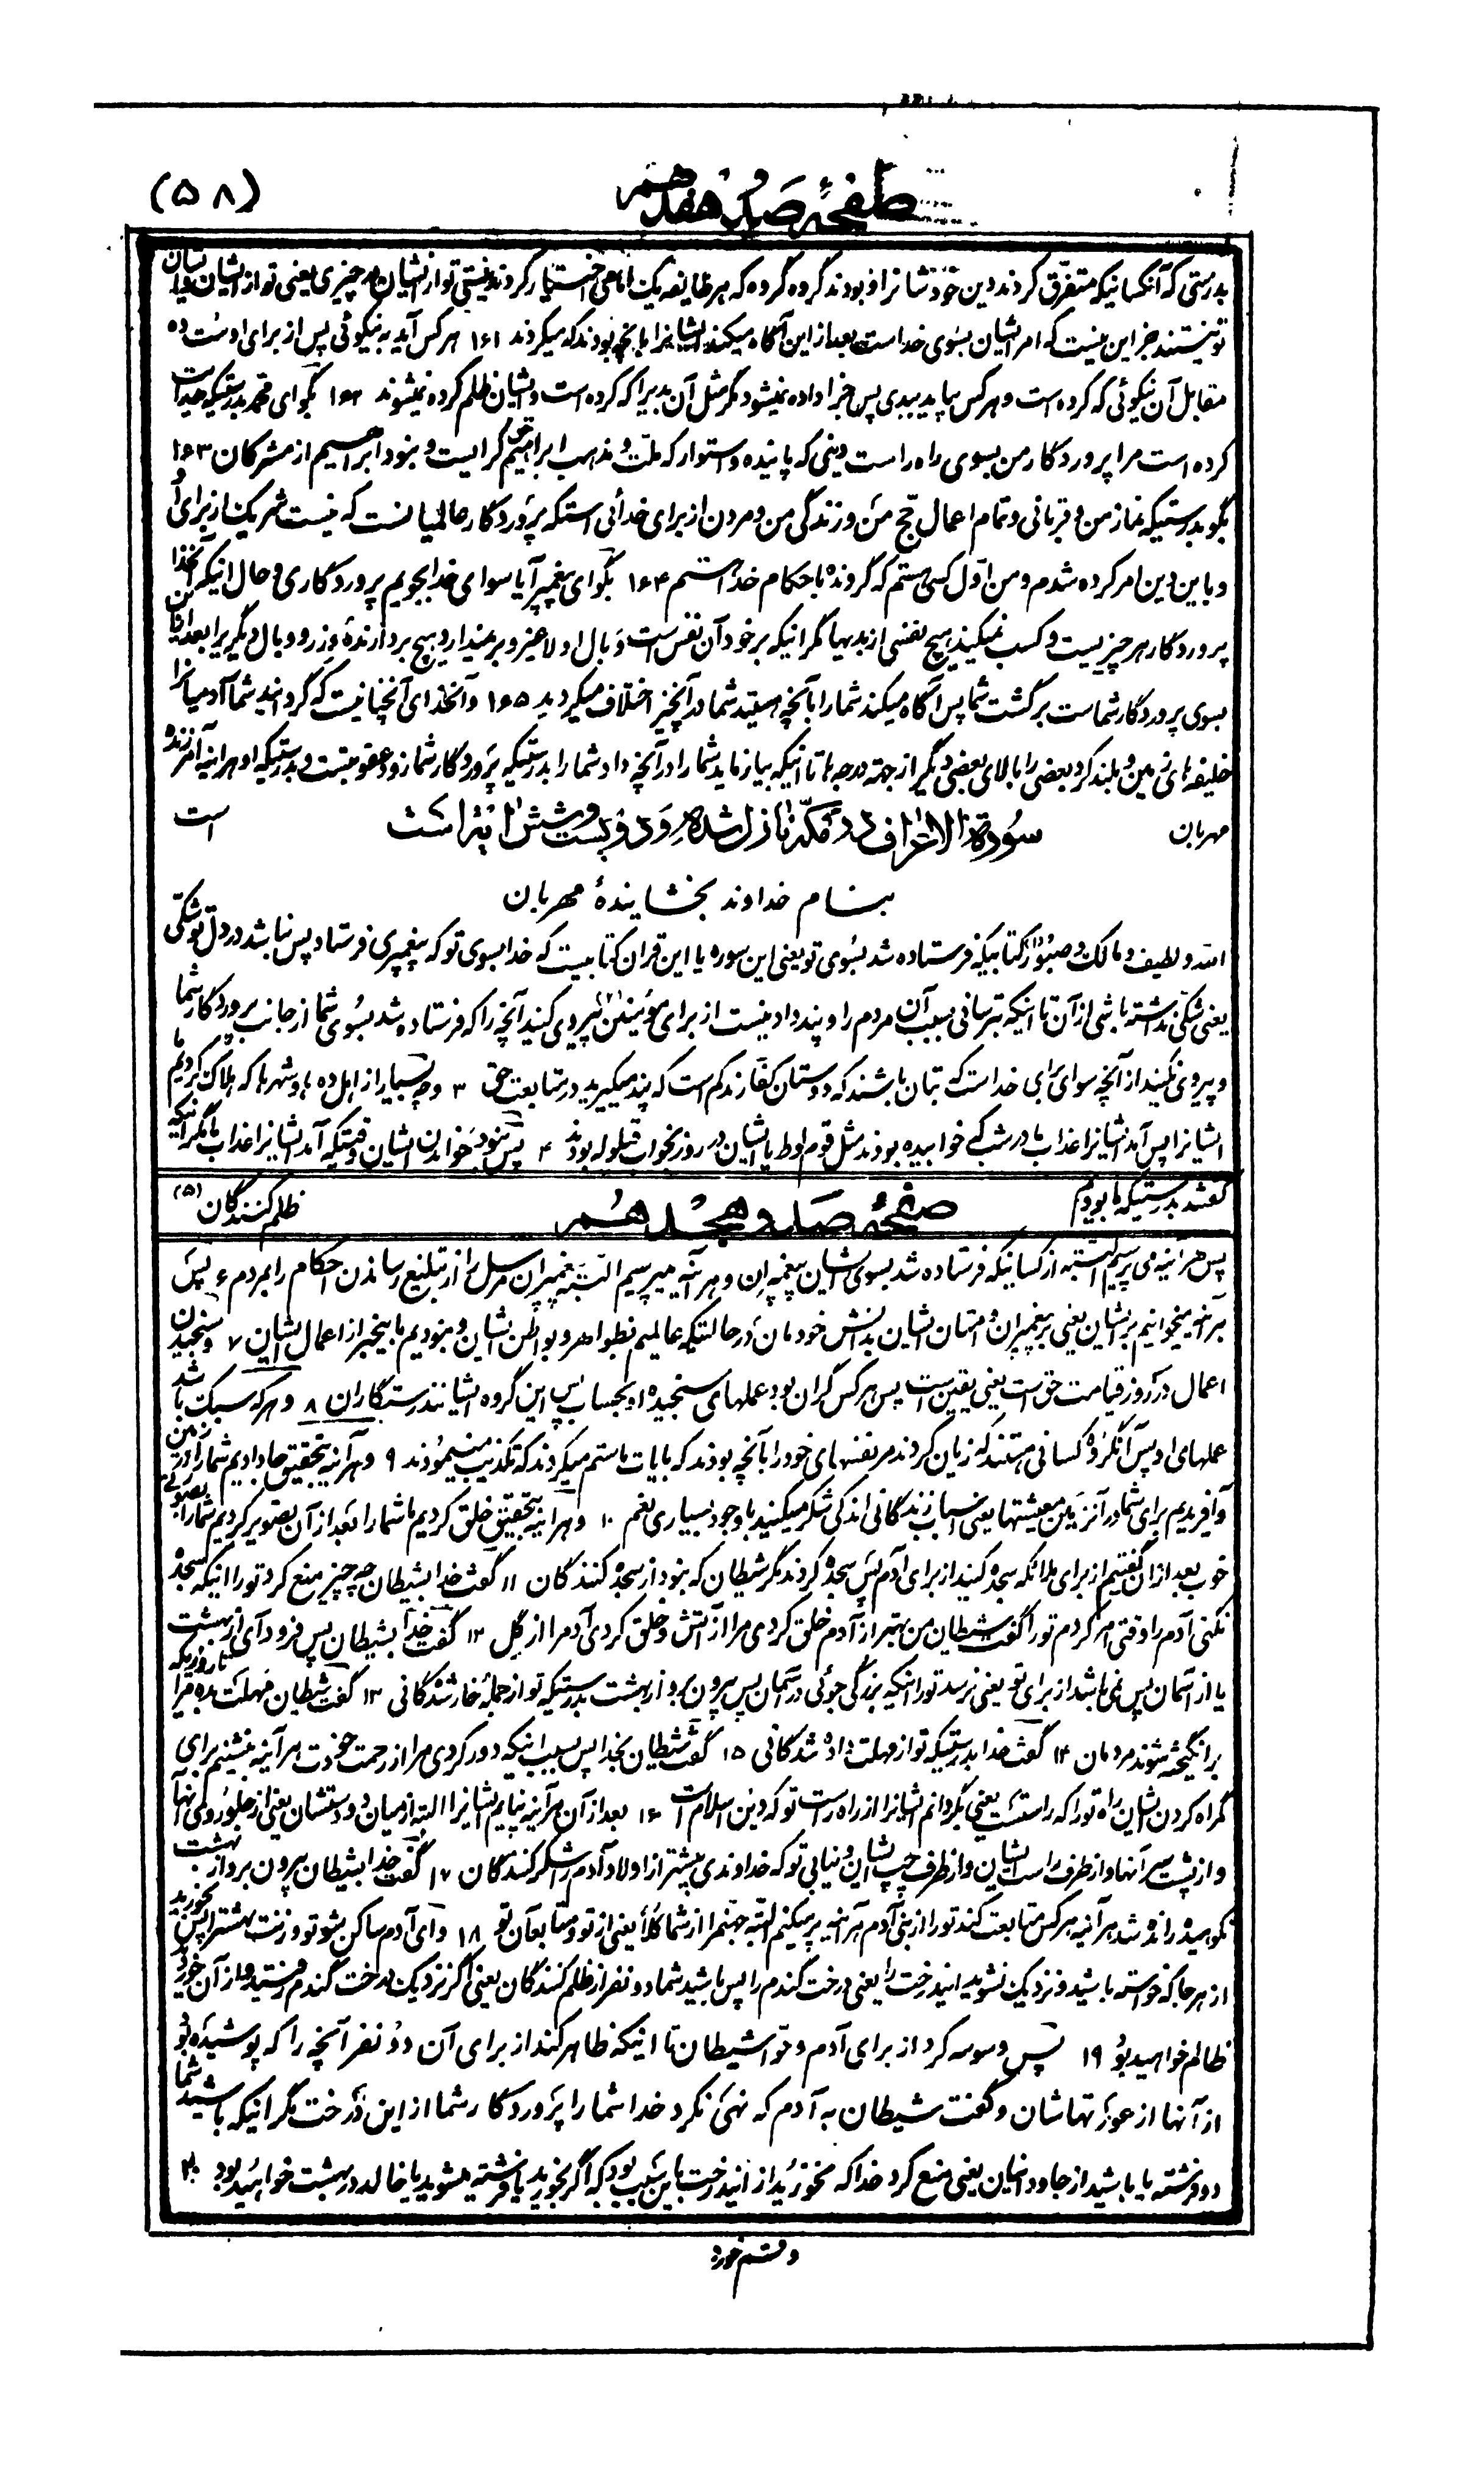 (۵۸)
صفحهٔ صد و هفدهم
بدرستی که آنکسانیکه متفرّق کردند دین خودشانرا و بودند گروه گروه که هر طایفه یک امامی اختیار کردند نیستی تو از ایشان در چیزی یعنی تو از ایشان و ایشان از
تو نیستند جز این نیست که امر ایشان بسوی خداست بعد از این آگاه میکند ایشانرا بآنچه بودند که میکردند ۱۶۱ هر کس آید به نیکوئی پس از برای اوست ده
مقابل آن نیکوئی که کرده است و هر کس بیاید ببدی پس جزا داده نمیشود مگر مثل آن بدیرا که کرده است و ایشان ظلم کرده نمیشوند ۱۶۲ بگو ای محمد بدرستیکه هدایت
کرده است مرا پروردگار من بسوی راه راست دینی که پاینده و استوار که ملّت و مذهب ابراهیم حق گرا است و نبود ابراهیم از مشرکان ۱۶۳
بگو بدرستیکه نماز من و قربانی و تمام اعمال حجّ من و زندگی من و مردن از برای خدائی استکه پروردگار عالمیانست که نیست شریک از برای او
و باین دین امر کرده شدم و من اوّل کسی هستم که گرونده باحکام خدا هستم ۱۶۴ بگو ای پیغمبر آیا سوای خدا بجویم پروردگاری و حال اینکه آنخدا
پروردگار هر چیزیست و کسب نمیکند هیچ نفسی از بدیها مگر اینکه بر خود آن نفس است وبال او لا غیر و بر نمیدارد هیچ بردارندهٔ وزر و وبال دیگریرا بعد از آن
بسوی پروردگار شماست برگشت شما پس آگاه میکند شما را بآنچه هستید شما در آنچیز اختلاف میکردید ۱۶۵ و آنخدای آنچنانیست که گردانید شما آدمیانرا
خلیفه های زمین و بلند کرد بعضی را بالای بعضی دیگر از جهة درجه ها تا اینکه بیازماید شما را در آنچه داد شما را بدرستیکه پروردگار شما زود عقوبتست و بدرستیکه او هرآینه آمرزنده
مهربان است
سورة الاعراف در مکّه نازل شده و دویست و شش آیه است
بنام خداوند بخشایندهٔ مهربان
الله و لطیف و مالک و صبور کتابیکه فرستاده شد بسوی تو یعنی این سوره یا این قران کتابیست که خدا بسوی تو که پیغمبری فرستاد پس نباشد در دل تو شکّی
یعنی شکّی نداشته باشی از آن تا اینکه بترسانی بسبب آن مردم را و پند دادنیست از برای مؤمنین (۲) پیروی کنید آنچه را که فرستاده شد بسوی شما از جانب پروردگار شما
و پیروی نکنید از آنچه سوای برای خداست که بتان باشند که دوستان کفّارند کم است که پند میگیرید در متابعت حق ۳ و چه بسیار از اهل ده ها و شهرها که هلاک کردیم ما
ایشانرا پس آمد ایشانرا عذاب ما در شب که خوابیده بودند مثل قوم لوط یا ایشان در روز بخواب قیلوله بودند ۴ پس نبود خواندن ایشان وقتیکه آمد ایشانرا عذاب ما مگر اینکه
گفتند بدرستیکه ما بودیم ظلم کنندگان (۵)
صفحهٔ صد و هیجدهم
پس هرآینه می پرسیم البته از کسانیکه فرستاده شد بسوی ایشان پیغمبران و هرآینه میپرسیم البتّه پیغمبران مرسل را از تبلیغ رساندن احکام را بمردم ۶ پس
هرآینه میخوانیم بر ایشان یعنی بر پیغمبران و امتهان ایشان بدانش خودمان در حالتیکه عالمیم بظواهر و بواطن ایشان و نبودیم ما بیخبر از اعمال ایشان ۷ و سنجیدن
اعمال در روز قیامت حق است یعنی یقین است پس هر کس گران بود عملهای سنجیده او بحساب پس این گروه ایشانند رستگاران ۸ و هر که سبک باشد
عملهای او پس آنگروه کسانی هستند که زیان کردند مر نفسهای خود را بآنچه بودند که بایات ما ستم میکردند که تکذیب مینمودند ۹ و هرآینه بتحقیق جا دادیم شما را در زمین
و آفریدیم برای شما در آنزمین معیشتها یعنی اسباب زندگانی اندکی شکر میکنید با وجود بسیاری نعم ۱۰ و هرآینه بتحقیق خلق کردیم ما شما را بعد از آن تصویر کردیم شما را بصورتی
خوب بعد از آن گفتیم از برای ملائکه سجده کنید از برای آدم پس سجده کردند مگر شیطان که نبود از سجده کنندگان ۱۱ گفت خدا بشیطان چه چیز منع کرد تو را اینکه سجده
نکنی آدم را وقتی امر کردم تو را گفت شیطان من بهتر از آدم خلق کردی مرا از آتش و خلق کردی آدمرا از گل ۱۲ گفت خدا بشیطان پس فرود آی از بهشت
یا از آسمان پس نمی باشد از برای تو یعنی نرسد تو را اینکه بزرگی جوئی در آسمان پس بیرون برو از بهشت بدرستیکه تو از جملهٔ خارشدگانی ۱۳ گفت شیطان مهلت بده مرا تا روزیکه
برانگیخته شوند مردمان ۱۴ گفت خدا بدرستیکه تو از مهلت داده شدگانی ۱۵ گفت شیطان بخدا پس بسبب اینکه دور کردی مرا از رحمت خودت هرآینه بنشینم برای
گمراه کردن ایشان راه تو را که راستست یعنی بگردانم ایشانرا از راه راست تو که دین اسلام است ۱۶ بعد از آن هرآینه بیایم ایشانرا البته از میان دو دستشان یعنی از جلو روی آنها
و از پشت سر آنها و از طرف راست ایشان و از طرف چپ ایشان و نیابی تو که خداوندی بیشتر از اولاد آدم را شکر کنندگان ۱۷ گفت خدا بشیطان بیرون برو از بهشت
نکوهیده رانده شد هرآینه هر کس متابعت کند تو را از بنی آدم هرآینه پر میکنم البتّه جهنمرا از شما کُلّاً یعنی از تو و متابعان تو ۱۸ و ای آدم ساکن بشو تو و زنت بهشترا پس بخورید
از هر جا که خواسته باشید و نزدیک نشوید ایندرخت را یعنی درخت گندم را پس باشید شما دو نفر از ظلم کنندگان یعنی اگر نزدیک درخت گندم رفتید و از آن خورید
ظالم خواهید بود ۱۹ پس وسوسه کرد از برای آدم و حوّا شیطان تا اینکه ظاهر کند از برای آن دو نفر آنچه را که پوشیده بود
از آنها از عورتهاشان و گفت شیطان به آدم که نهی نکرد خدا شما را پروردگار شما از این درخت مگر اینکه باشید شما
دو فرشته یا باشید از جاودانیان یعنی منع کرد خدا که نخورید از ایندرخت باین سبب بود که اگر بخورید یا فرشته میشوید یا خالد در بهشت خواهید بود ۲۰
و قسم خورد